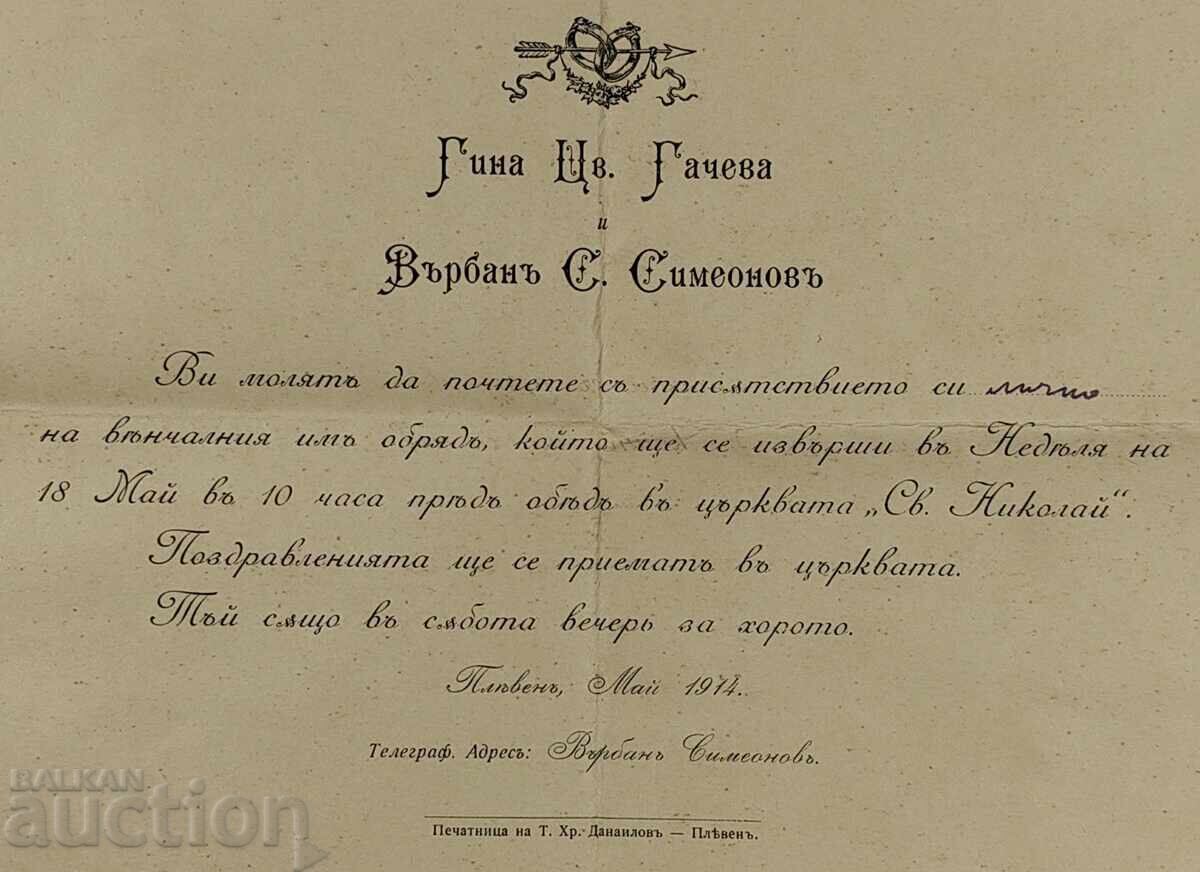 Гина Цв. Гачева
и
Върбанъ С. Симеоновъ
Ви молятъ да почтете съ присѫтствието си лично
на вѣнчалния имъ обрядъ, който ще се извърши въ Недѣля на
18 Май въ 10 часа прѣдъ обѣдъ въ църквата „Св. Николай“.
Поздравленията ще се приематъ въ църквата.
Тъй сѫщо въ сѫбота вечерь за хорото.
Плѣвенъ, Май 1914.
Телеграф. Адресъ: Върбанъ Симеоновъ.
Печатница на Т. Хр. Данаиловъ — Плѣвенъ.
BALKAN
auction